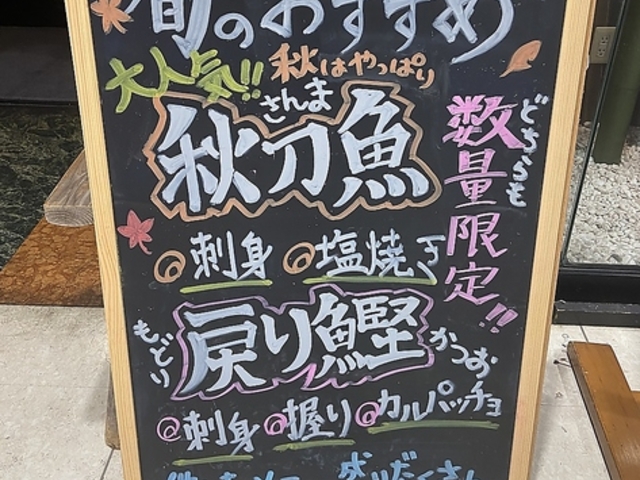 旬のおすすめ
大人気!! 秋はやっぱり
さんま
秋刀魚
どちらも
数量限定!!
◎刺身 ◎塩焼き
もどり
戻り鰹
かつお
◎刺身 ◎握り ◎カルパッチョ